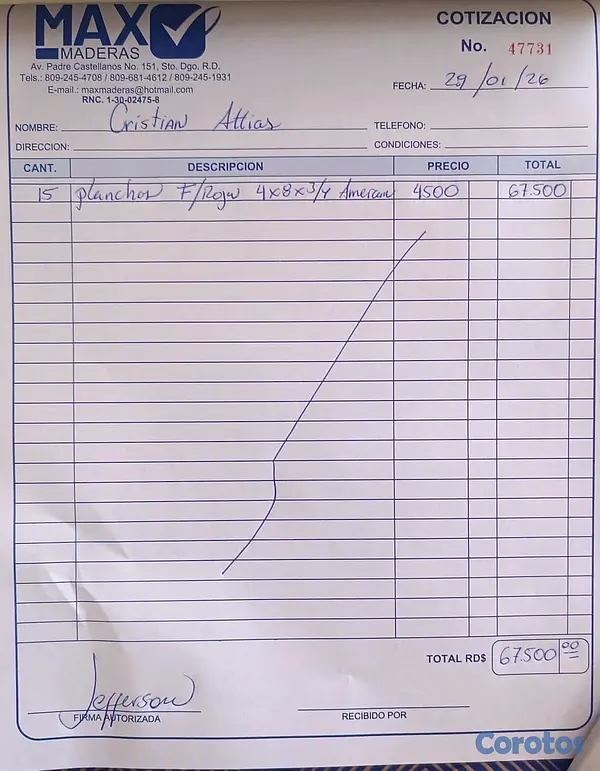 MAX
MADERAS
Av. Padre Castellanos No. 151, Sto. Dgo. R.D.
Tels.: 809-245-4708 / 809-681-4612 / 809-245-1931
E-mail.: maxmaderas@hotmail.com
RNC. 1-30-02475-8
COTIZACION
No. 47731
FECHA: 29/01/26
NOMBRE: Cristian Attias TELEFONO:
DIRECCION: CONDICIONES:
CANT. DESCRIPCION PRECIO TOTAL
15 planchas F/Roja 4x8x3/4 American 4500 67.500
TOTAL RD$ 67.500 00
Jefferson
FIRMA AUTORIZADA
RECIBIDO POR
Corotos